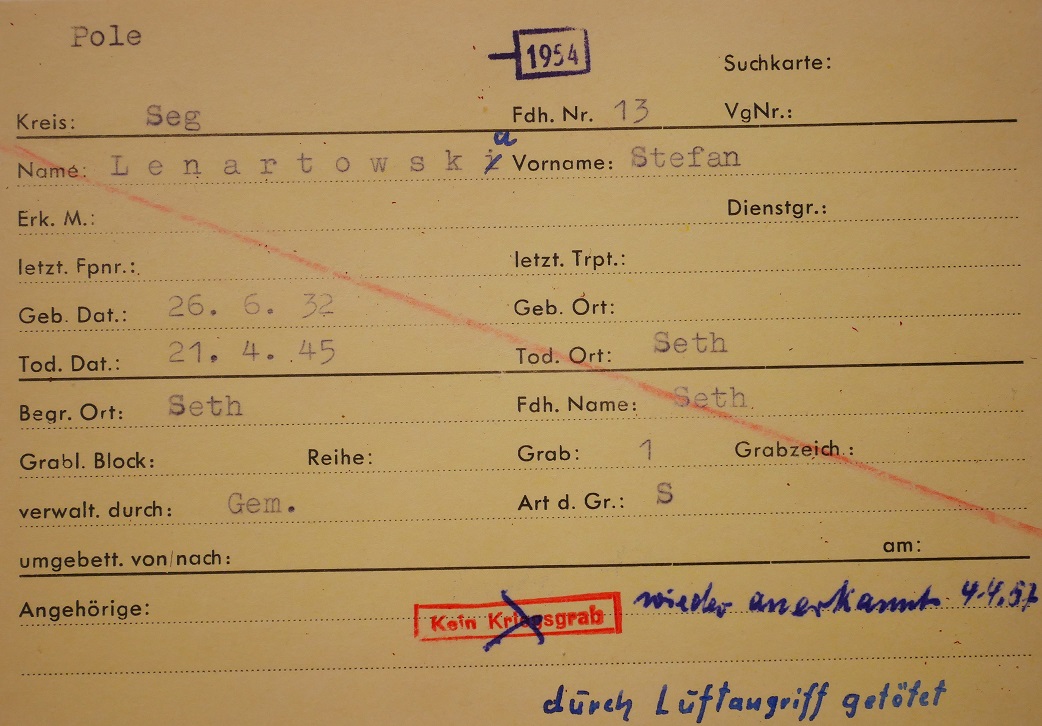 Pole
1954
Suchkarte:
Kreis: Seg Fdh. Nr. 13 VgNr.:
a
Name: Lenartowski Vorname: Stefan
Erk. M.: Dienstgr.:
letzt. Fpnr.: letzt. Trpt.:
Geb. Dat.: 26. 6. 32 Geb. Ort:
Tod. Dat.: 21. 4. 45 Tod. Ort: Seth
Begr. Ort: Seth Fdh. Name: Seth
Grabl. Block: Reihe: Grab: 1 Grabzeich.:
verwalt. durch: Gem. Art d. Gr.: S
umgebett. von/nach: am:
Angehörige: Kein Kriegsgrab wieder anerkannt 4.4.57
durch Luftangriff getötet